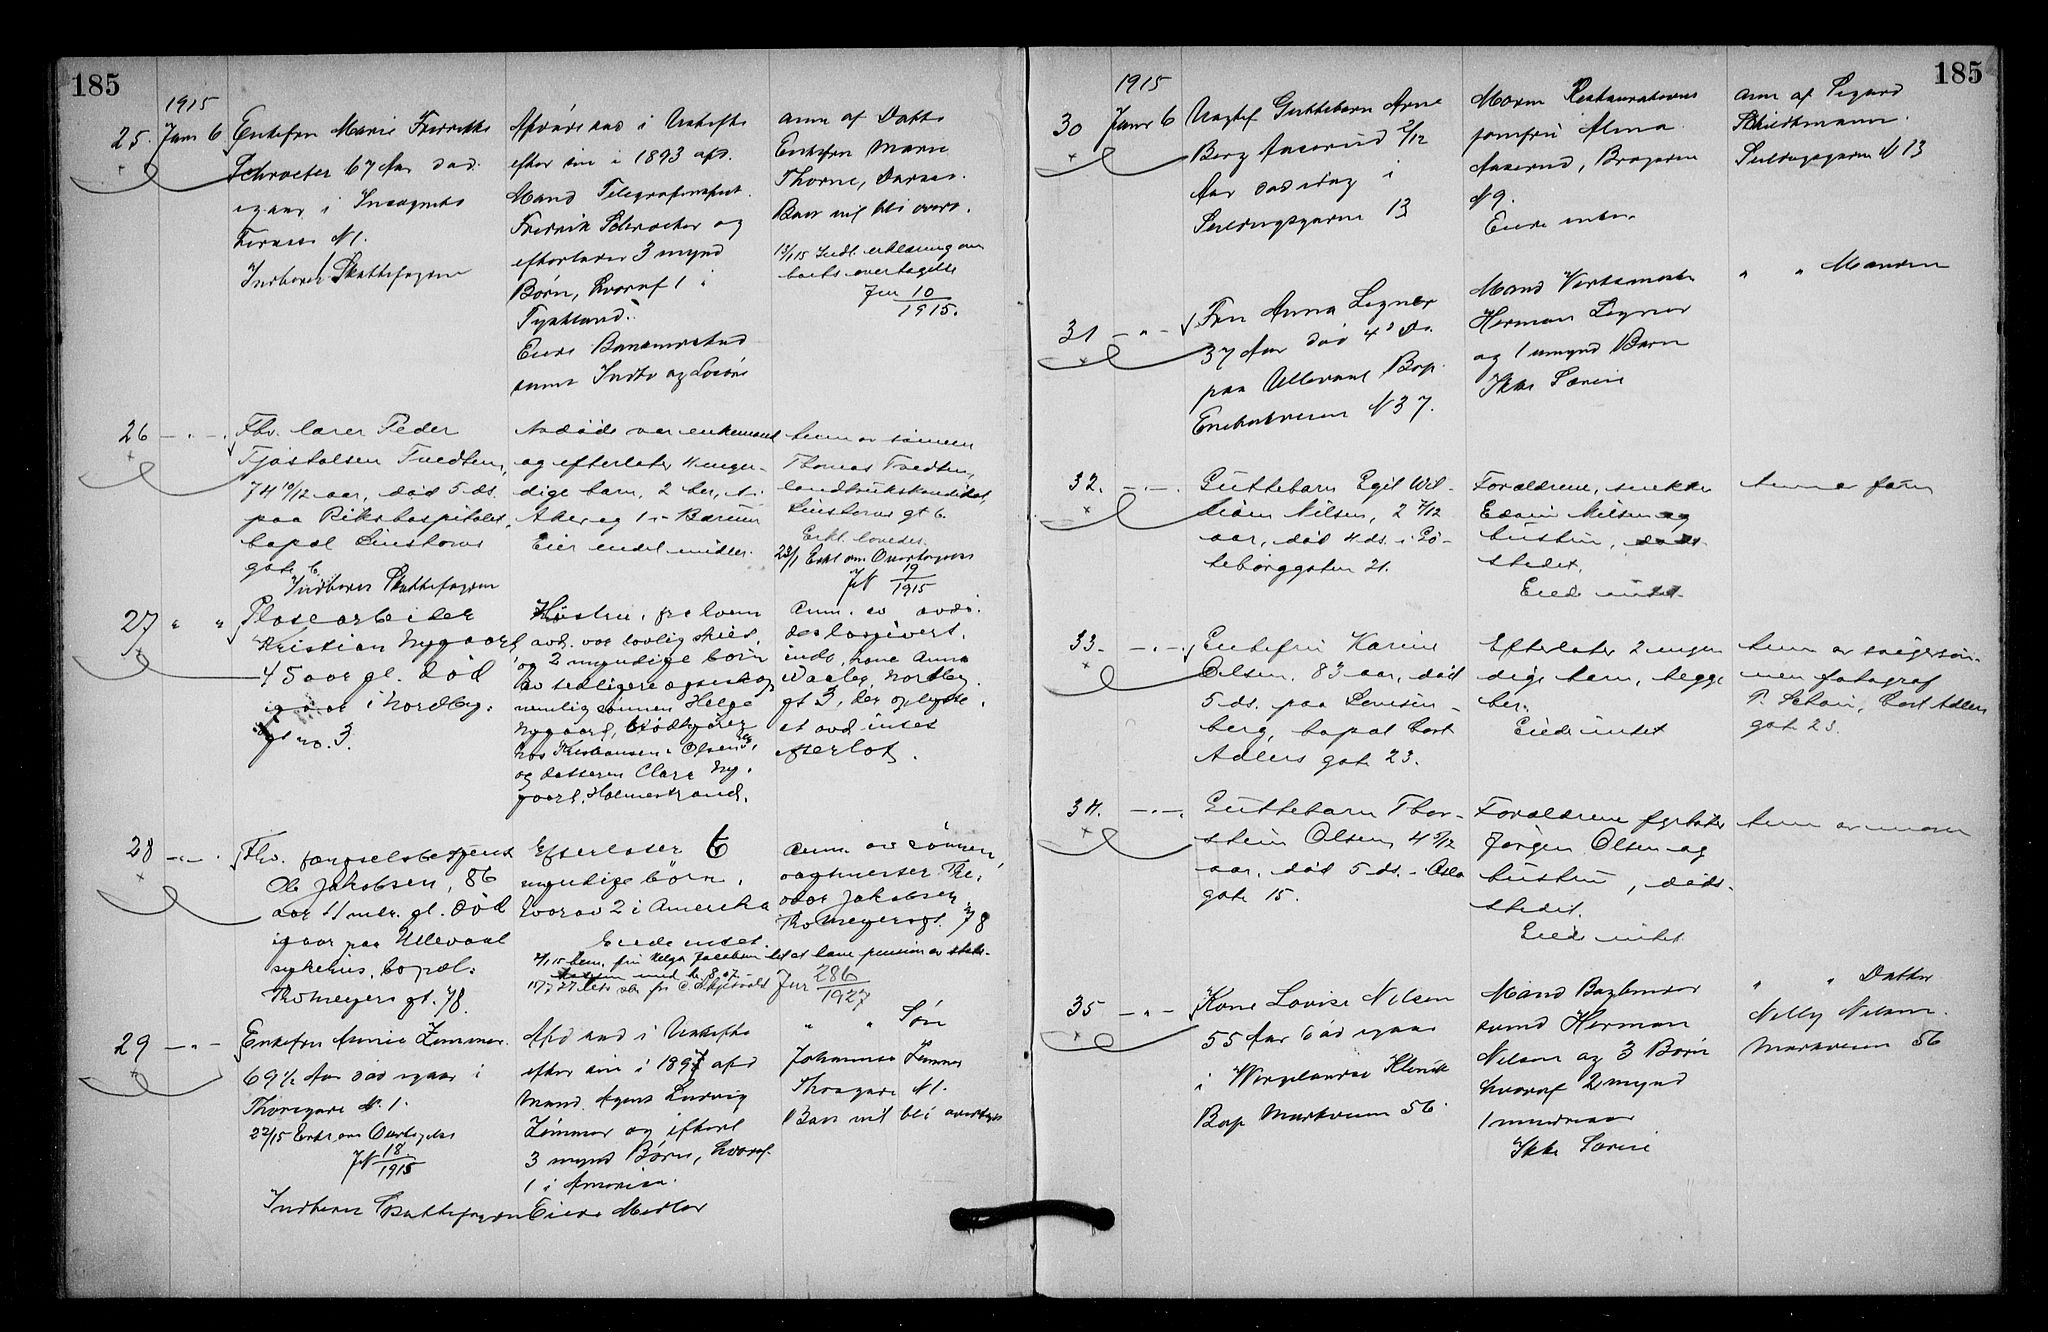 185
1915
25. Janr 6 Enkefru Marie Fredrikke
Schroeter 67 Aar død
igaar i Incognito
Terasse N 1.
Indberet Skattefogden
Afdøde sad i Uskifte
efter sin i 1893 afd.
Mand Telegrafinspekt.
Fredrik Schroeter og
efterlader 3 mynd
Børn, hvoraf 1 i
Tyskland.
Eiede
samt Indbo og Løsøre
anm af Datte
Enkefru Marie
Thorne,
Boet vil bli overt.
13/1 15 Indl. erklæring om
boets overtagelse
Jnr 10/1915.
26 - " - Fhv. lærer Peder
Tjøstolsen Tvedten,
74 10/12 aar, død 5 ds.
paa Rikshospitalet,
bopæl Linstows
gate 6
Indberet Skattefogden
Avdøde var enkemand
og efterlater 4 myn-
dige barn, 2 her, 1 i
Aker og 1 i Bærum
Eier endel midler.
Anm. av sønnen
Thomas Tvedten,
landbrukskandidat,
Linstows gt 6.
Erkl. loves.
23/1 Erkl om Overtagelse
JN 19/1915
27 " " Glasarbeider
Kristian Nygaard
45 aar gl. død
igaar i Nordby.
gt no. 3.
Hustru, fra hvem
avd. var lovlig skilt,
og 2 myndige børn
av tidligere egteskap
nemlig sønnen Helge
Nygaard,
hos Kristiansen & Olsen,
og datteren Clara Ny-
gaard, Holmestrand.
Anm. av avdø-
des logivert.
inde, kone Anna
Waaler, Nordby.
gt 3, der oplyste,
at avd. intet
efterlot.
28 - " - Fhv. fængselsbetjent
Ole Jakobsen, 86
aar 11 mdr. gl. død
igaar paa Ullevaal
sykehus, bopæl:
Th Meyers gt. 78.
Efterlater 6
myndige børn,
hvorav 2 i Amerika
Eiede intet.
Anm. av sønnen,
vagtmester The-
odor Jakobsen
Th Meyers gt. 78
Jnr 286/1927
29 - " - Enkefru Annie Zimmer.
69 1/2 Aar død igaar i
Thorsgade N. 1.
22/1 15 Erkl om Overtagelse
JN 18/1915
Indberet Skattefogden
Afd sad i Uskifte
efter sin i 1897 afd
Mand Agent Ludvig
Zimmer og efterl
3 mynd Børn, hvoraf
1 i Amerika.
Eiede Midler
" " Søn
Johannes Zimmer
Thorsgade N 1.
Boet vil bli overtaget
185
1915
30 Janr 6 Uægtef Guttebarn Arne
Berg Aaserud 2/12
Aar død idag i
Seildugsgaden 13
Moren Restaurations
jomfru Alma
Aaserud,
N 9.
Eiede intet.
anm af Sigurd
Schiedtmann.
Seildugsgaden N 13
31 - " - Fru Anna Legner
37 Aar død 4' ds.
paa Ullevaal Bop.
Enebakveien N 37.
Mand Verksmester
Herman Legner
og 1 umynd Barn
Ikke Særeie
" " Manden
32. - " - Guttebarn Egil Wil-
liam Nilsen, 2 7/12
aar, død 4 ds. i Gø-
teborggaten 21.
Forældrene, snekker
Edvin Nilsen og
hustru, døds-
stedet.
Eiede intet.
Anm av faren
33. - " - Enkefru Karine
Olsen, 83 aar, død
5 ds. paa Lovisen-
berg, bopæl Cort
Adlers gate 23.
Efterlater 2 myn
dige barn, begge
her.
Eiede intet
Anm av svigersøn-
nen fotograf
P. Schøin, Cort Adlers
gate 23.
34. - " - Guttebarn Thor-
stein Olsen, 4 5/12
aar, død 5 ds. i Oslo
gate 15.
Forældrene fyrbøter
Jørgen Olsen og
hustru, døds-
stedet.
Eiede intet
Anm av moren
35 - " - Kone Lovise Nilsen
55 Aar død igaar
i Vergelandse Klinik
Bop Markveien 56
Mand Bagermester
svend Herman
Nilsen og 3 Børn
hvoraf 2 mynd
1 mindreaar
Ikke Særeie
" " Datter
Nelly Nilsen.
Markveien 56